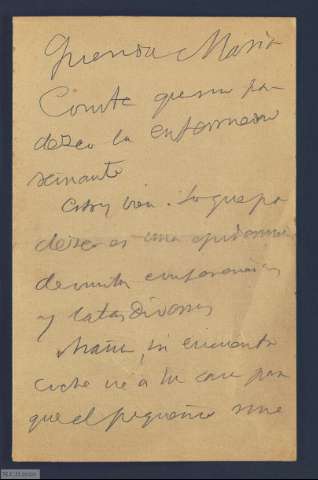 Querida María
Conste que no pa
dezco la enfermedad
reinante
Estoy bien. Lo que pa
dezco es una epidemia
de invita conferencias
y latas diversas
Mañana, si encuentro
coche iré a tu casa para
que el pequeño me